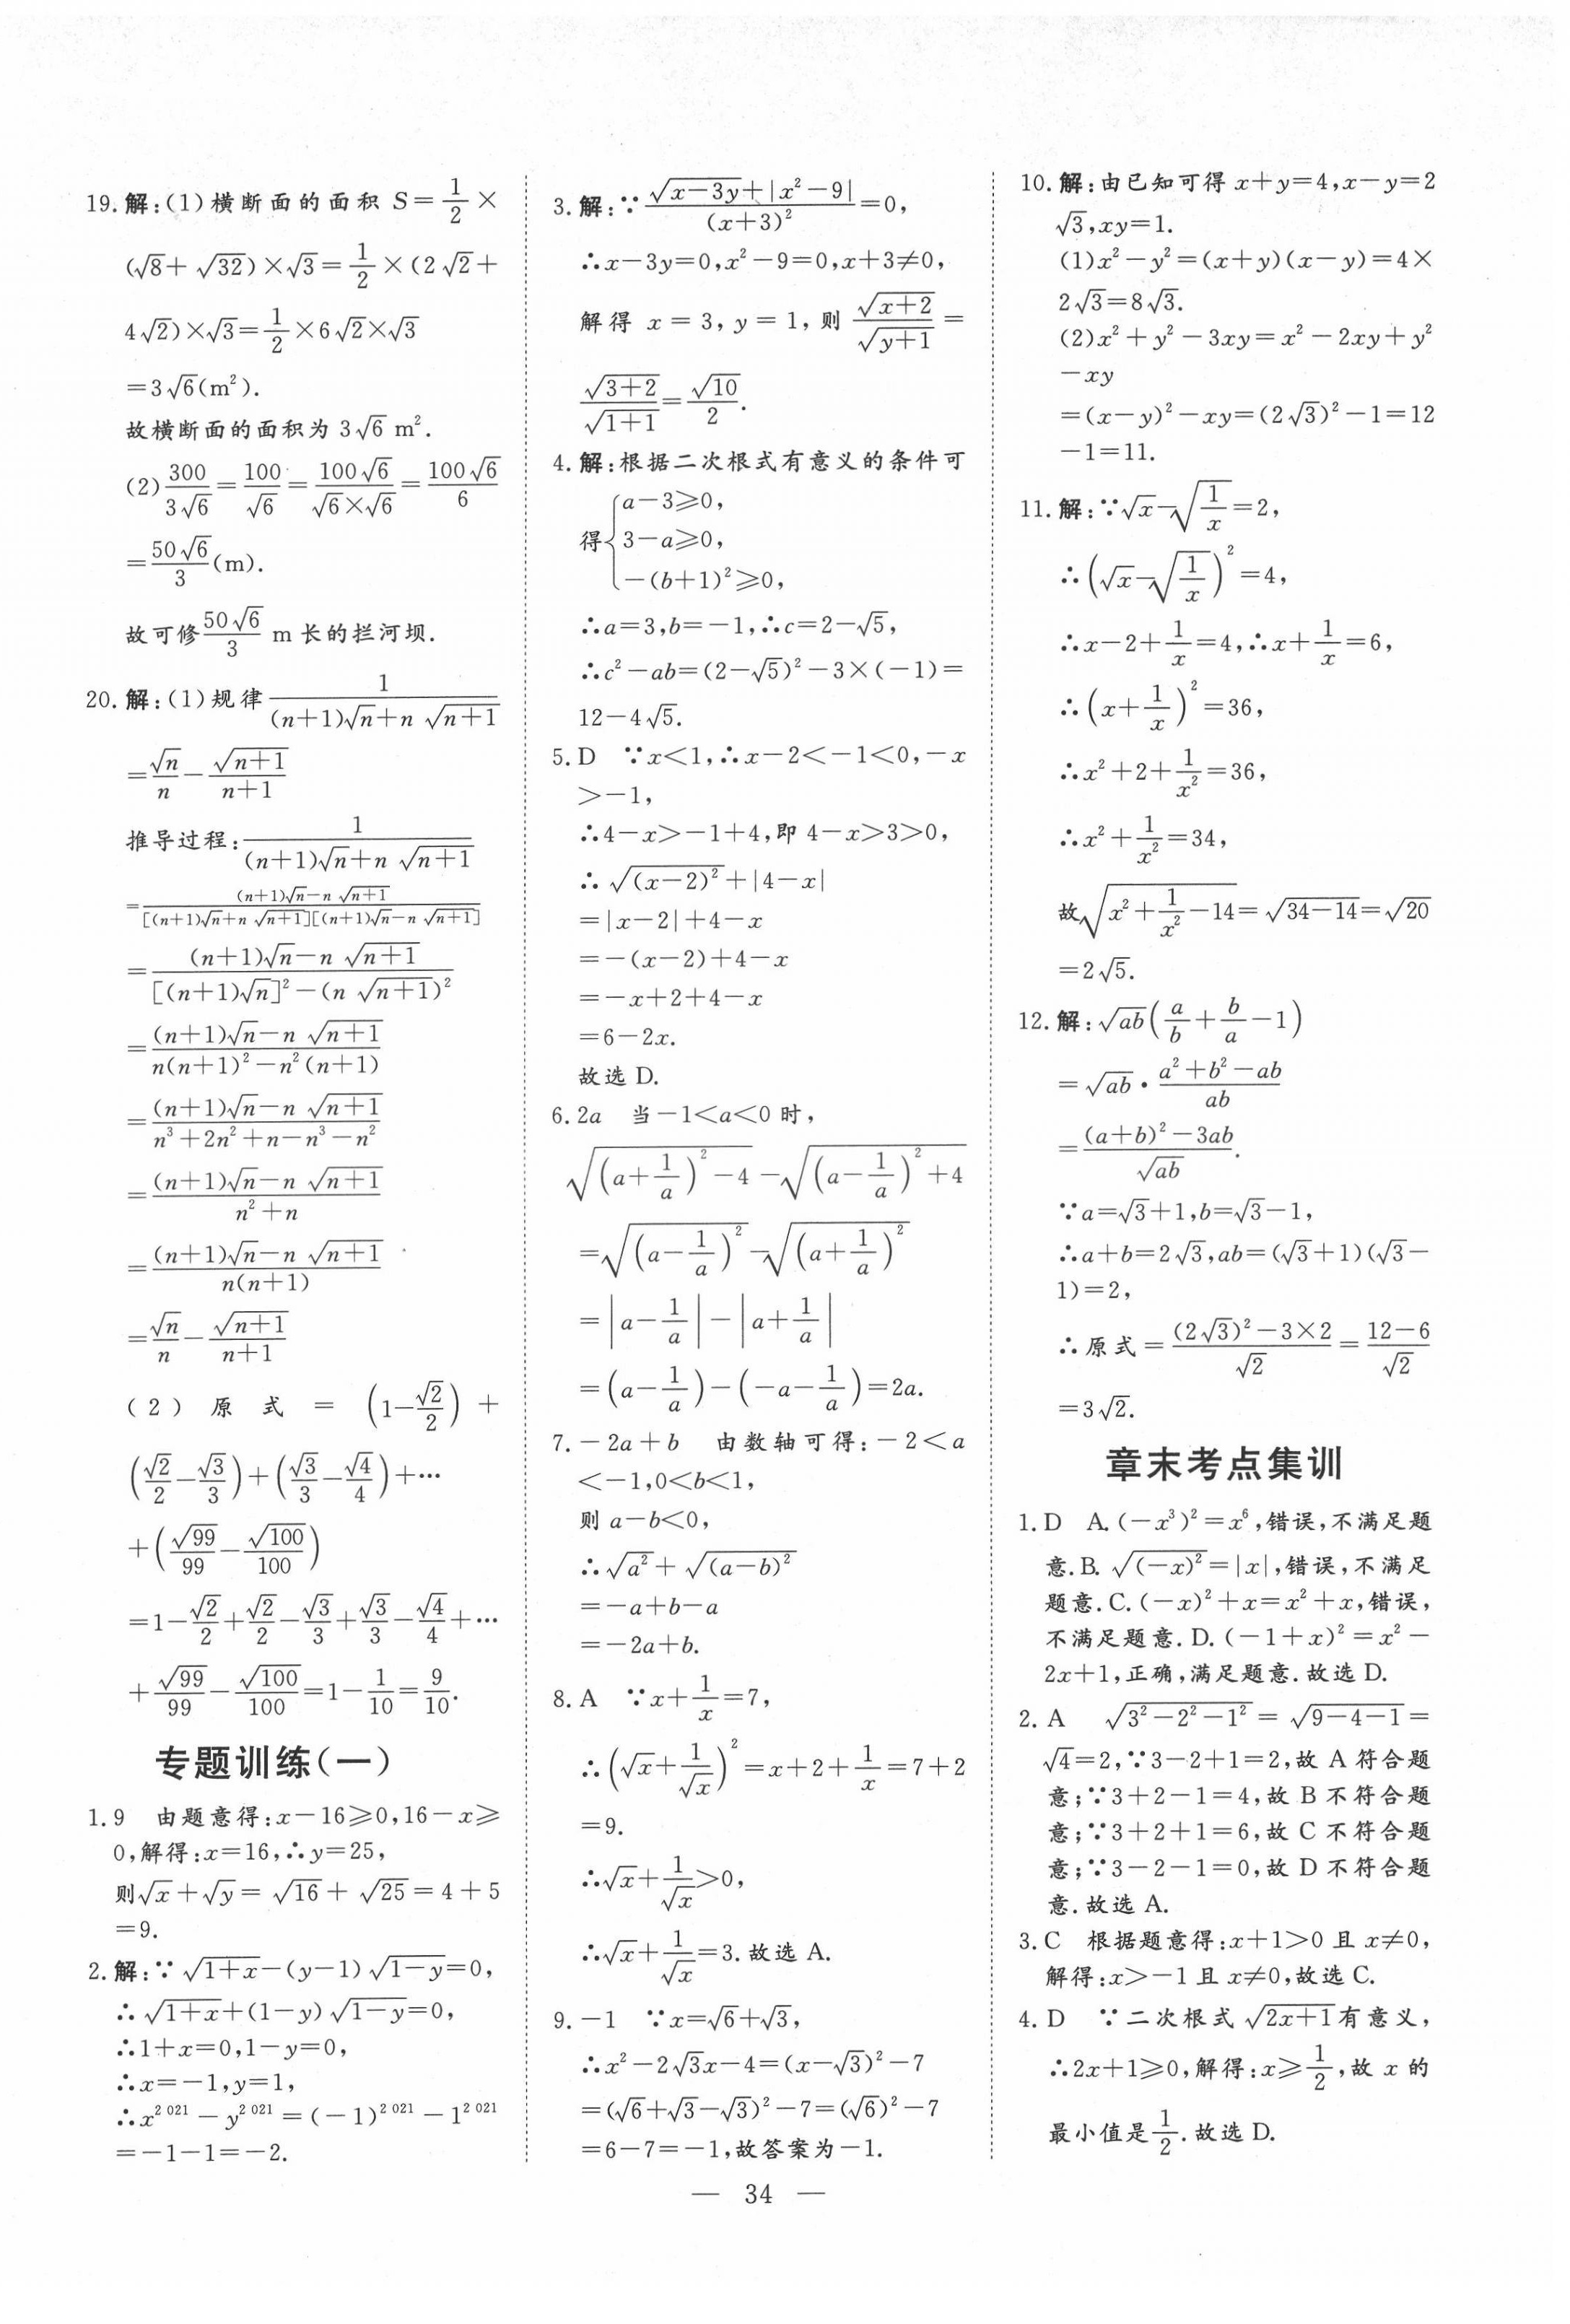 19. 解:(1)横断面的面积 S=1/2×
(√8+√32)×√3=1/2×(2√2+
4√2)×√3=1/2×6√2×√3
=3√6(m²).
故横断面的面积为 3√6 m².
(2)300/(3√6)=100/√6=100√6/(√6×√6)=100√6/6
=50√6/3(m).
故可修50√6/3 m 长的拦河坝.
20. 解:(1)规律 1/((n+1)√n+n√(n+1))
=√n/n-√(n+1)/(n+1)
推导过程:1/((n+1)√n+n√(n+1))
=((n+1)√n-n√(n+1))/([(n+1)√n+n√(n+1)][(n+1)√n-n√(n+1)])
=((n+1)√n-n√(n+1))/([(n+1)√n]²-(n√(n+1))²)
=((n+1)√n-n√(n+1))/(n(n+1)²-n²(n+1))
=((n+1)√n-n√(n+1))/(n³+2n²+n-n³-n²)
=((n+1)√n-n√(n+1))/(n²+n)
=((n+1)√n-n√(n+1))/(n(n+1))
=√n/n-√(n+1)/(n+1)
(2)原式=(1-√2/2)+
(√2/2-√3/3)+(√3/3-√4/4)+…
+(√99/99-√100/100)
=1-√2/2+√2/2-√3/3+√3/3-√4/4+…
+√99/99-√100/100=1-1/10=9/10.
专题训练(一)
1.9 由题意得:x-16≥0,16-x≥
0,解得:x=16,∴y=25,
则√x+√y=√16+√25=4+5
=9.
2.解:∵√(1+x)-(y-1)√(1-y)=0,
∴√(1+x)+(1-y)√(1-y)=0,
∴1+x=0,1-y=0,
∴x=-1,y=1,
∴x^2 021-y^2 021=(-1)^2 021-1^2 021
=-1-1=-2.
3.解:∵(√(x-3y)+|x²-9|)/(x+3)²=0,
∴x-3y=0,x²-9=0,x+3≠0,
解得 x=3,y=1,则 √(x+2)/√(y+1)=
√(3+2)/√(1+1)=√10/2.
4.解:根据二次根式有意义的条件可
得{a-3≥0,
3-a≥0,
-(b+1)²≥0,
∴a=3,b=-1,∴c=2-√5,
∴c²-ab=(2-√5)²-3×(-1)=
12-4√5.
5.D ∵x<1,∴x-2<-1<0,-x
>-1,
∴4-x>-1+4,即 4-x>3>0,
∴√((x-2)²)+|4-x|
=|x-2|+4-x
=-(x-2)+4-x
=-x+2+4-x
=6-2x.
故选 D.
6.2a 当-1<a<0 时,
√((a+1/a)²-4)-√((a-1/a)²+4)
=√((a-1/a)²)-√((a+1/a)²)
=|a-1/a|-|a+1/a|
=(a-1/a)-(-a-1/a)=2a.
7.-2a+b 由数轴可得:-2<a
<-1,0<b<1,
则 a-b<0,
∴√(a²)+√((a-b)²)
=-a+b-a
=-2a+b.
8.A ∵x+1/x=7,
∴(√x+1/√x)²=x+2+1/x=7+2
=9.
∴√x+1/√x>0,
∴√x+1/√x=3.故选 A.
9.-1 ∵x=√6+√3,
∴x²-2√3x-4=(x-√3)²-7
=(√6+√3-√3)²-7=(√6)²-7
=6-7=-1,故答案为-1.
10.解:由已知可得 x+y=4,x-y=2
√3,xy=1.
(1)x²-y²=(x+y)(x-y)=4×
2√3=8√3.
(2)x²+y²-3xy=x²-2xy+y²
-xy
=(x-y)²-xy=(2√3)²-1=12
-1=11.
11.解:∵√x-√(1/x)=2,
∴(√x-√(1/x))²=4,
∴x-2+1/x=4,∴x+1/x=6,
∴(x+1/x)²=36,
∴x²+2+1/x²=36,
∴x²+1/x²=34,
故√(x²+1/x²-14)=√(34-14)=√20
=2√5.
12.解:√ab(a/b+b/a-1)
=√ab·(a²+b²-ab)/ab
=((a+b)²-3ab)/√ab.
∵a=√3+1,b=√3-1,
∴a+b=2√3,ab=(√3+1)(√3-
1)=2,
∴原式=((2√3)²-3×2)/√2=(12-6)/√2
=3√2.
章末考点集训
1.D A.(-x³)²=x⁶,错误,不满足题
意.B.√((-x)²)=|x|,错误,不满足
题意.C.(-x)²+x=x²+x,错误,
不满足题意.D.(-1+x)²=x²-
2x+1,正确,满足题意.故选 D.
2.A √(3²-2²-1²)=√(9-4-1)=
√4=2,∵3-2+1=2,故 A 符合题
意;∵3+2-1=4,故 B 不符合题
意;∵3+2+1=6,故 C 不符合题
意;∵3-2-1=0,故 D 不符合题
意.故选 A.
3.C 根据题意得:x+1>0 且 x≠0,
解得:x>-1 且 x≠0,故选 C.
4.D ∵二次根式√(2x+1)有意义,
∴2x+1≥0,解得:x≥1/2,故 x 的
最小值是1/2.故选 D.
— 34 —